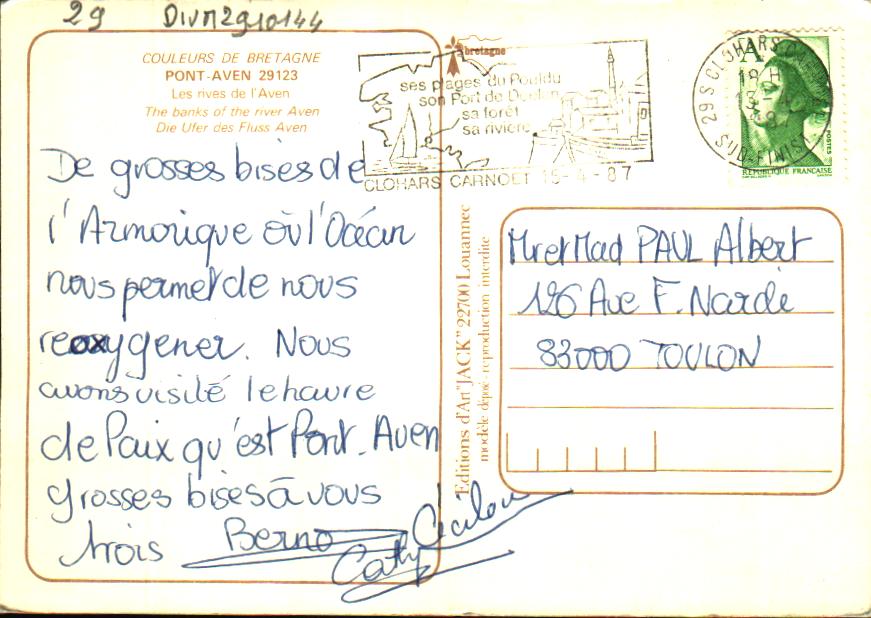 29 DIVM2910144
COULEURS DE BRETAGNE
PONT-AVEN 29123
Les rives de l'Aven
The banks of the river Aven
Die Ufer des Fluss Aven
De grosses bises de
l'Armorique où l'Océan
nous permet de nous
reoxygener. Nous
avons visité le havre
de Paix qu'est Pont-Aven
grosses bises à vous
trois Berno
Cathy Cécilou
bretagne
ses plages du Pouldu
son Port de Doelan
sa forêt
sa rivière
CLOHARS CARNOET 15-4-87
Editions d'Art "JACK" 22700 Louannec
modèle déposé - reproduction interdite
29 S CLOHARS
18 H
SUD-FINIST
A
POSTES
REPUBLIQUE FRANÇAISE
Mr et Mad PAUL Albert
126 Ave F. Nardi
83000 TOULON